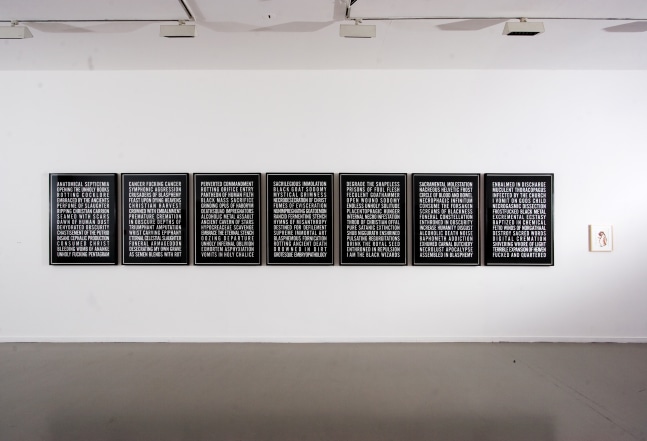 ANATOMICAL SEPTICEMIA
OPENING THE UNHOLY BOOKS
ROTTING COCKLORE
EMBRACED BY THE ANCIENTS
PERFUME OF SLAUGHTER
RIPPING CHRISTIAN CARRION
SEAMED WITH SCARS
DAWN OF MEGIDDO
DEHYDRATED OBSCURITY
CHASTISEMENT OF THE PETITION
INSANE CEPHALIC PRODUCTION
CONSUMED CHRIST
BLEEDING WOUND OF
UNHOLY FUCKING PENTAGRAM
CANCER FUCKING CANCER
SYMPHONIC AGGRESSION
CRUSADERS OF BLASPHEMY
FEAST UPON DYING REAMINS
CHRISTIAN HARVEST
CROWNED WITH EMBALMENT
PREMATURE CREMATION
IN OBSCURE DEPTHS OF
TRIUMPHANT AMPUTATION
WHIS CARVING EPIPHANY
ETERNAL CELESTIAL SLAUGHTER
FUNERAL ARMAGEDDON
CREMATING MY OWN GROWE
AS SEMEN BLENDS WITH ROT
PERVERTED COMMANDMENT
ROTTING ORIFICE ENTRY
PANTHEON OF HUMAN FILTH
BLACK MASS SACRIFICE
GRINDING OPUS OF
IMPREGNATORS
ALCOHOLIC METAL ASSAULT
ANCIENT CAVERN OF STARS
HYPOCREACEAL SCAVENGE
EMBRACE THE ETERNAL STENCH
OOZING DEPARTURE
UNHOLY INFERNAL OBLIVION
CONSORTIUM REPUTATION
VOMITS IN HOLY CHALICE
SACRILEGIOUS IMMOLATION
BLACK GOAT SODOMY
MYSTICAL GRIMNESS
NECRODESECRATION OF CHRIST
FUMES OF EVISCERATION
RANCID FERMENTED STENCH
HYMNS OF MISANTHROPY
DESTINED FOR DEFILEMENT
SUPREME IMMORTAL ART
BLASPHEMOUS FORNICATION
ROTTING ANCIENT DEATH
DROWNED IN DIRT
GROTESQUE EMBRYOPATHOLOGY
DEGRADE THE SHAPELESS
PRISONS OF FOUL FLESH
FECULENT GOATHAMMER
OPEN WOUND SODOMY
ENDLESS UNHOLY SOLITUDE
PLACENTOPHAGIC HUNGER
INTERNAL NECRO INFESTATION
TUMOR OF CHRISTIANITY
PURE SATANIC EXTINCTION
CHRISTIANS ENSHRINED
PULSATING REGURGITATIONS
DRINK THE ROYAL SEED
ENTHRONED IN REPULSION
I AM THE BLACK WIZARDS
SACRAMENTAL MOLESTATION
NACREOUS HELVETIC FROST
CIRCLE OF BLOOD AND BONES
NECROPHAGIC INFINITUM
CONSUME THE FORSAKEN
SCREAMS OF BLACKNESS
ANAL CONSTELLATION
ENTHRONED IN OBSCURITY
INCREASE HUMANITY DISGUST
ALCOHOLIC DEATH NOISE
BAPHOMETH ADDICTION
CARNAL BUTCHERY
NECROLUST APOCALYPSE
ASSEMBLED IN BLASPHEMY
EMBALMED IN DISCHARGE
NUCULENT THORACOPAGUS
INFECTED BY THE CHURCH
I VOMIT ON GODS CHILD
NECROORGASMIC DISSECTION
FROSTFUCKED BLACK METAL
BAPTIZED IN CREMATION
FETID WINDS OF
DESTROY SACRED WORDS
DIGITAL CREMATION
SHIVERING WHORE OF LIGHT
TERRIBLE EXPANSION OF HEAVEN
FUCKED AND QUARTERED